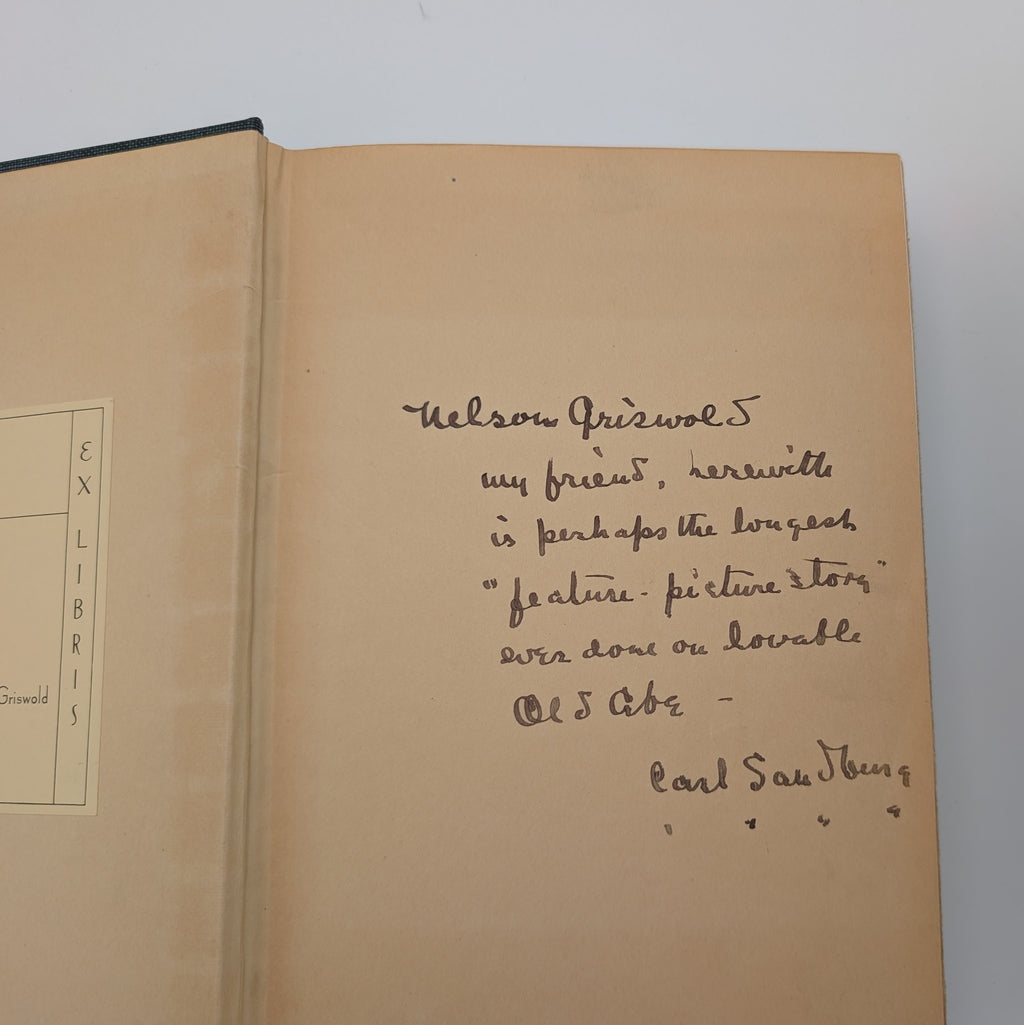 EX LIBRIS
Griswold
Nelson Griswold
my friend, herewith
is perhaps the longest
"feature-picture story"
ever done on lovable
Old Abe -
Carl Sandburg